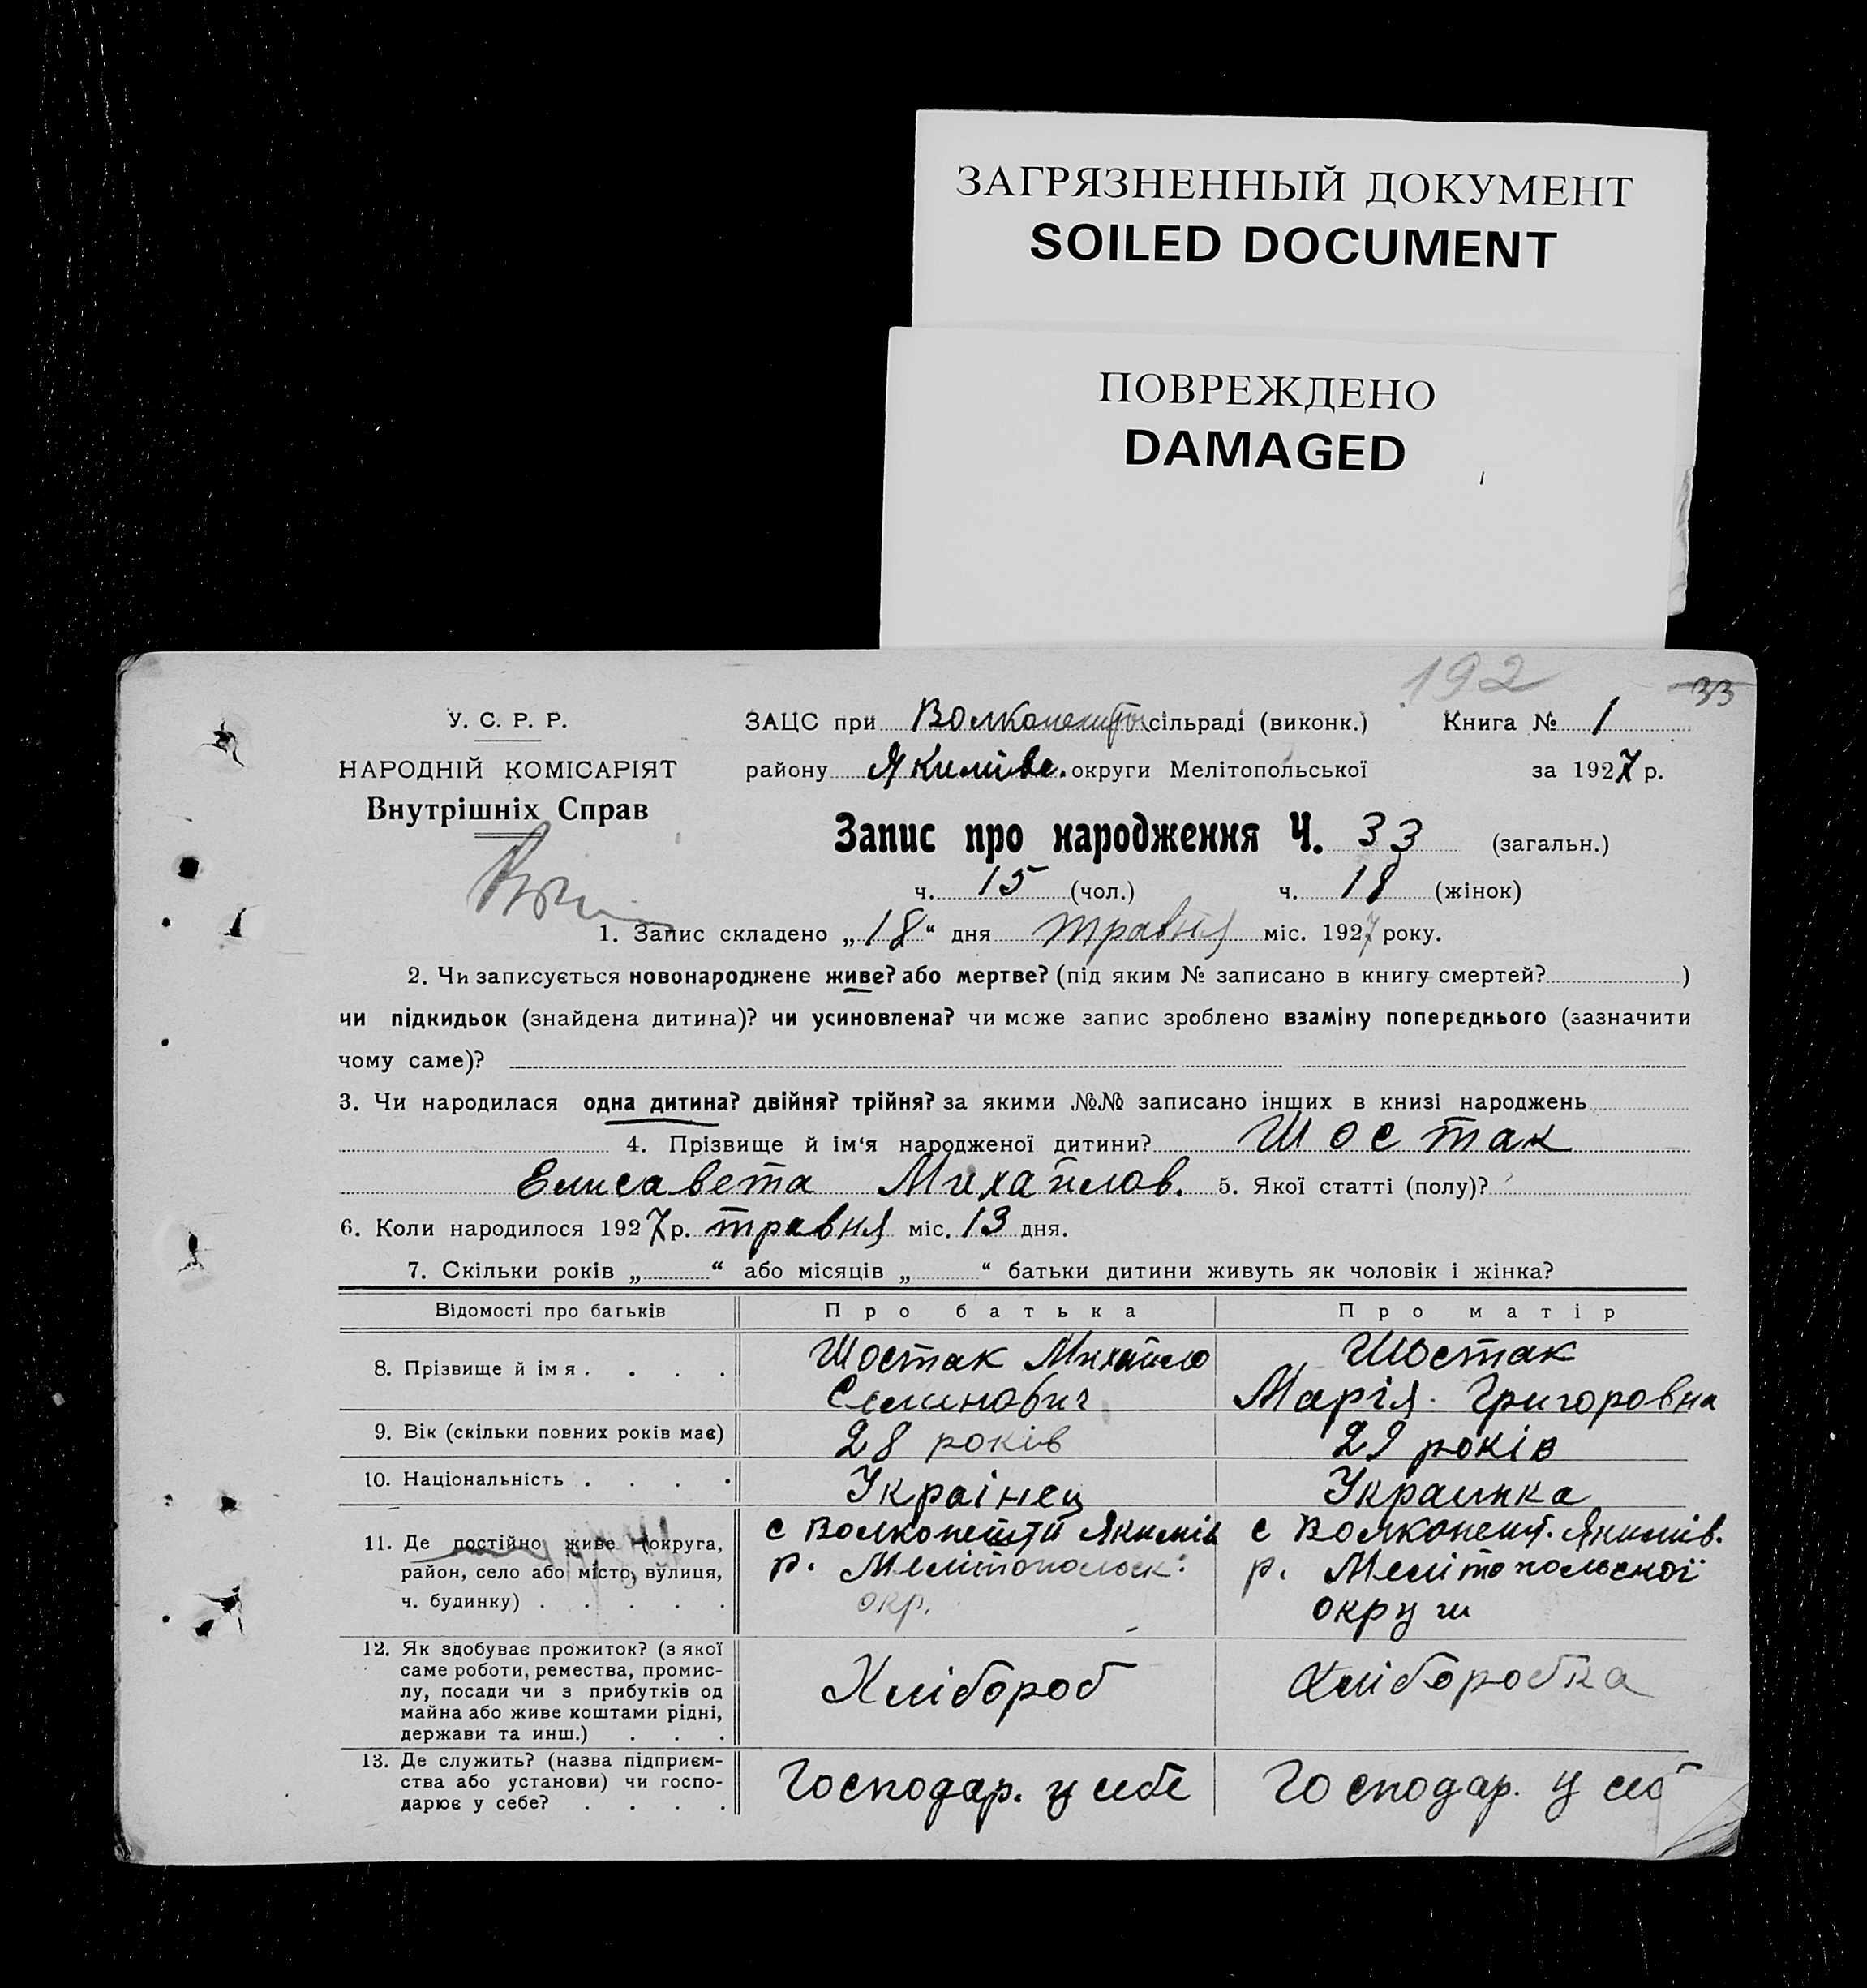 ЗАГРЯЗНЕННЫЙ ДОКУМЕНТ
SOILED DOCUMENT
ПОВРЕЖДЕНО
DAMAGED
192 33
У. С. Р. Р.
НАРОДНІЙ КОМІСАРІЯТ
Внутрішніх Справ
ЗАЦС при сільраді (виконк.) Книга № 1
району Якимівс. округи Мелітопольської за 1927 р.
Запис про народження Ч. 33 (загальн.)
ч. 15 (чол.) ч. 18 (жінок)
1. Запис складено „18“ дня травня міс. 1927 року.
2. Чи записується новонароджене живе? або мертве? (під яким № записано в книгу смертей? )
чи підкидьок (знайдена дитина)? чи усиновлена? чи може запис зроблено взаміну попереднього (зазначити
чому саме)?
3. Чи народилася одна дитина? двійня? трійня? за якими №№ записано інших в книзі народжень
4. Прізвище й ім‘я народженої дитини? Шостак
Елисавета Михайлов. 5. Якої статті (полу)?
6. Коли народилося 1927 р. травня міс. 13 дня.
7. Скільки років „ “ або місяців „ “ батьки дитини живуть як чоловік і жінка?
Відомості про батьків Про батька Про матір
8. Прізвище й ім я . . . . Шостак Михайло Шостак
Семинович Марія Григоровна
9. Вік (скільки повних років має) 28 років 29 років
10. Національність . . . . Украінец Украинка
11. Де постійно живе (округа, с Волконешти Якимів с Волконешт. Якимів.
район, село або місто, вулиця, р. Мелітопольск. р. Мелітопольскої
ч. будинку) . . . . . окр. округи
12. Як здобуває прожиток? (з якої
саме роботи, ремества, промис-
лу, посади чи з прибутків од Хлібороб Хліборобка
майна або живе коштами рідні,
держави та инш.) . . .
13. Де служить? (назва підприєм-
ства або установи) чи госпо- Господар. у себе Господар. у
дарює у себе? . . . .